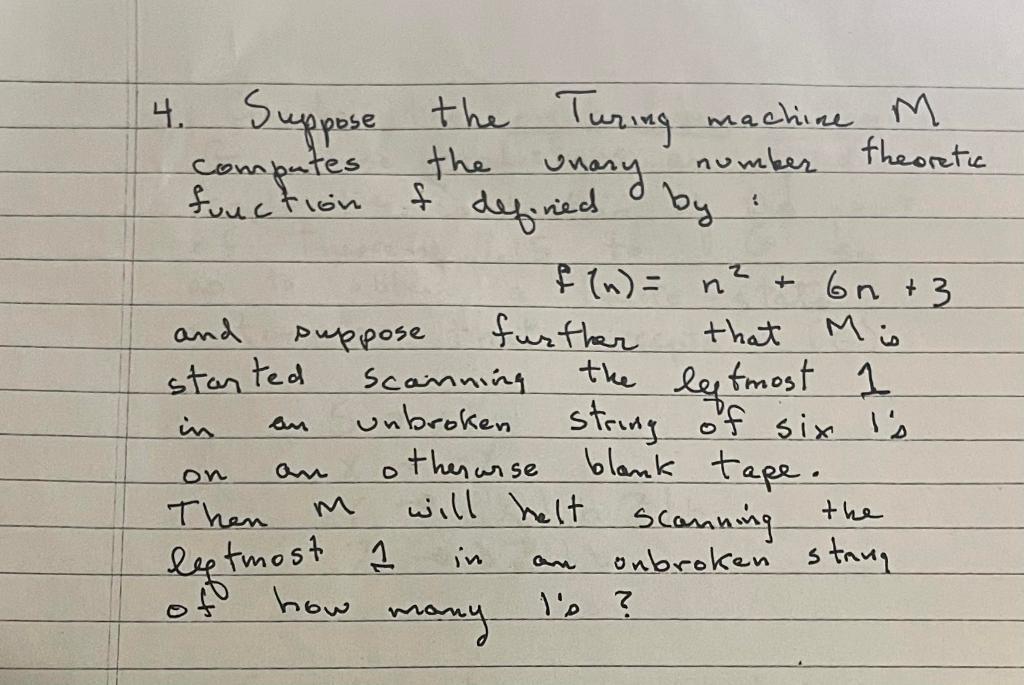 4. Suppose the Turing machine M
computes the unary number theoretic
function f defined by :
f(n) = n² + 6n + 3
and suppose further that M is
started scanning the leftmost 1
in an unbroken string of six 1's
on an otherwise blank tape.
Then M will halt scanning the
leftmost 1 in an unbroken string
of how many 1's ?